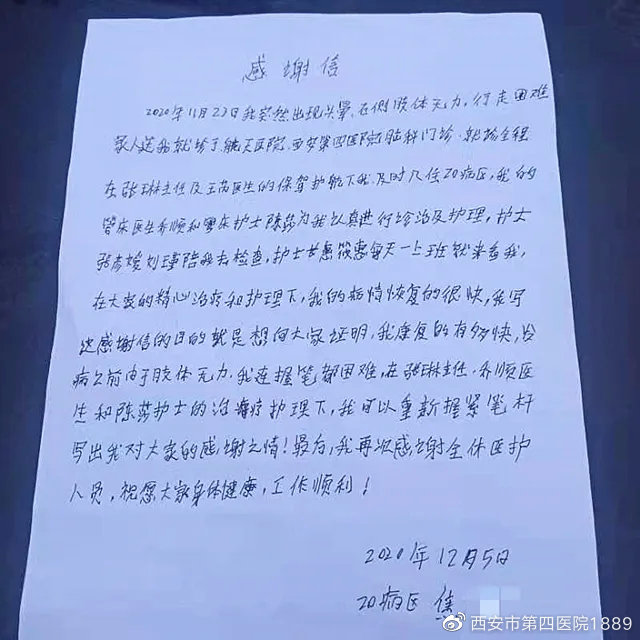 感谢信
2020年11月23日我突然出现头晕、右侧肢体无力,行走困难
家人送我就诊了航天医院、西安第四医院脑科门诊,就诊全程
在张琳主任及王芮医生的保驾护航下我及时入住20病区,我的
管床医生乔顺和管床护士陈莎为我认真进行诊治及护理,护士
张彦媛刘瑾陪我去检查,护士长惠筱惠每天一上班就来看我,
在大家的精心治疗和护理下,我的病情恢复的很快,我写
这感谢信的目的就是想向大家证明,我康复的有多快,治
病之前由于肢体无力,我连握笔都困难,在张琳主任、乔顺医
生和陈莎护士的治疗护理下,我可以重新握紧笔杆
写出我对大家的感谢之情!最后,我再次感谢全体医护
人员,祝愿大家身体健康,工作顺利!
2020年12月5日
20病区 焦
@西安市第四医院1889